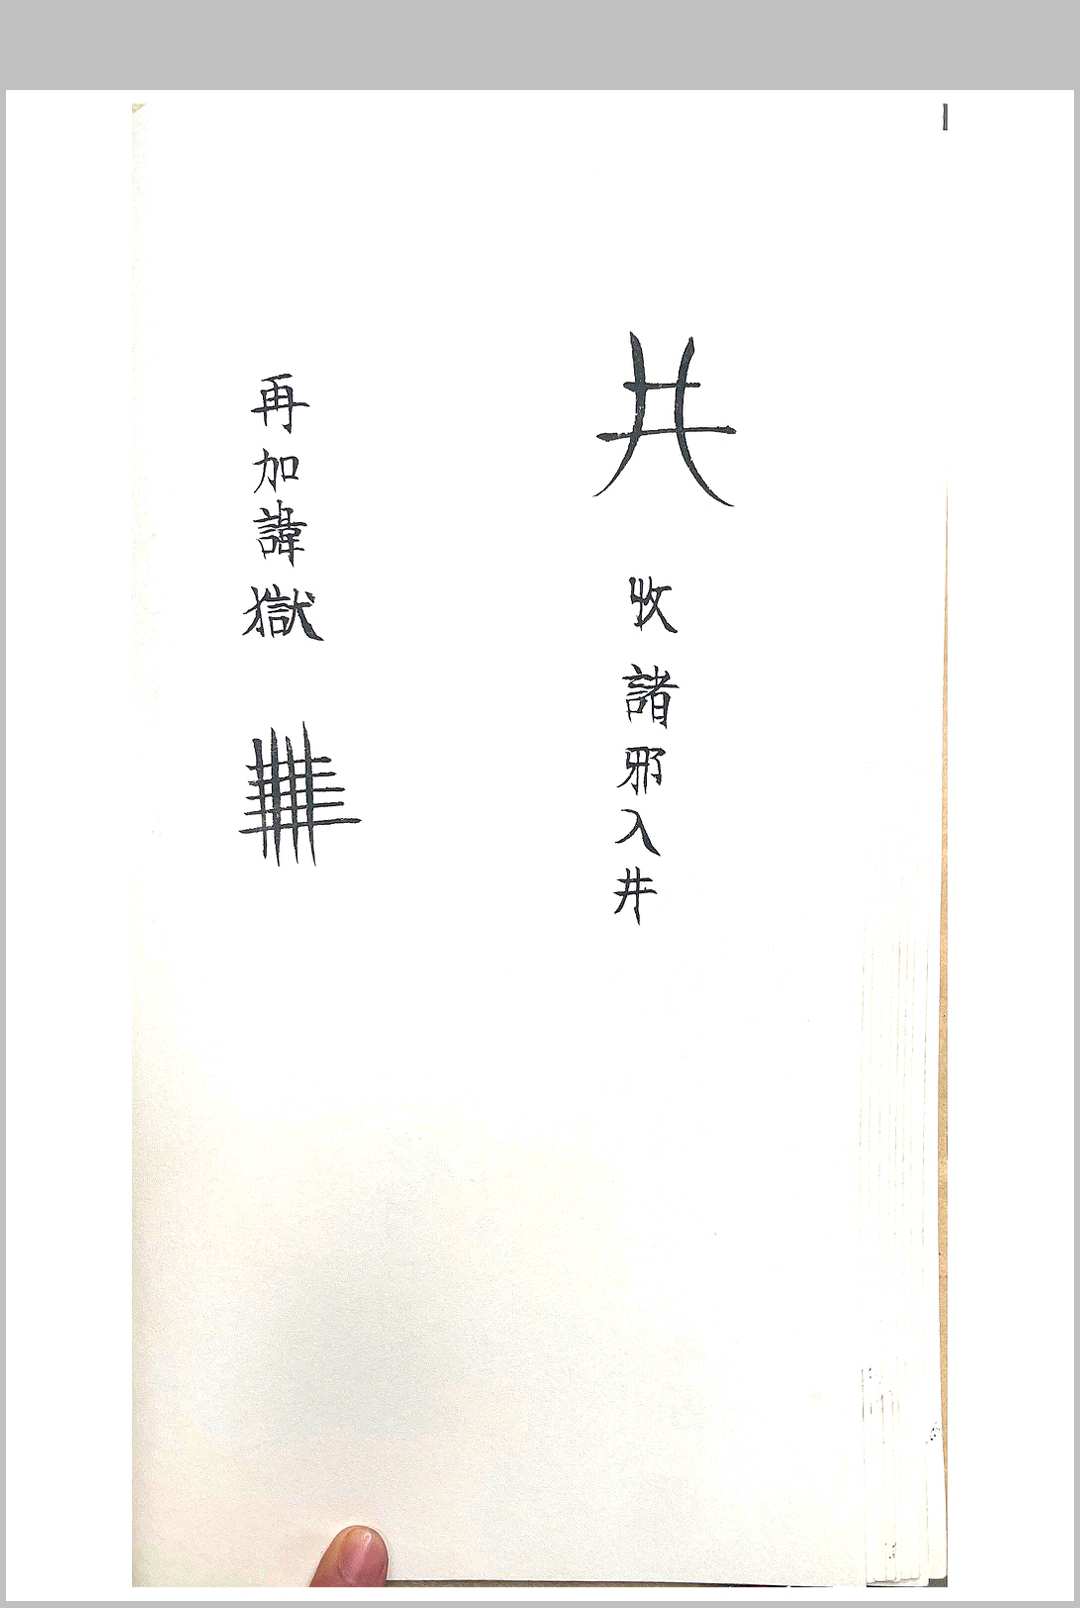 井 收諸邪入井
再加諱獄